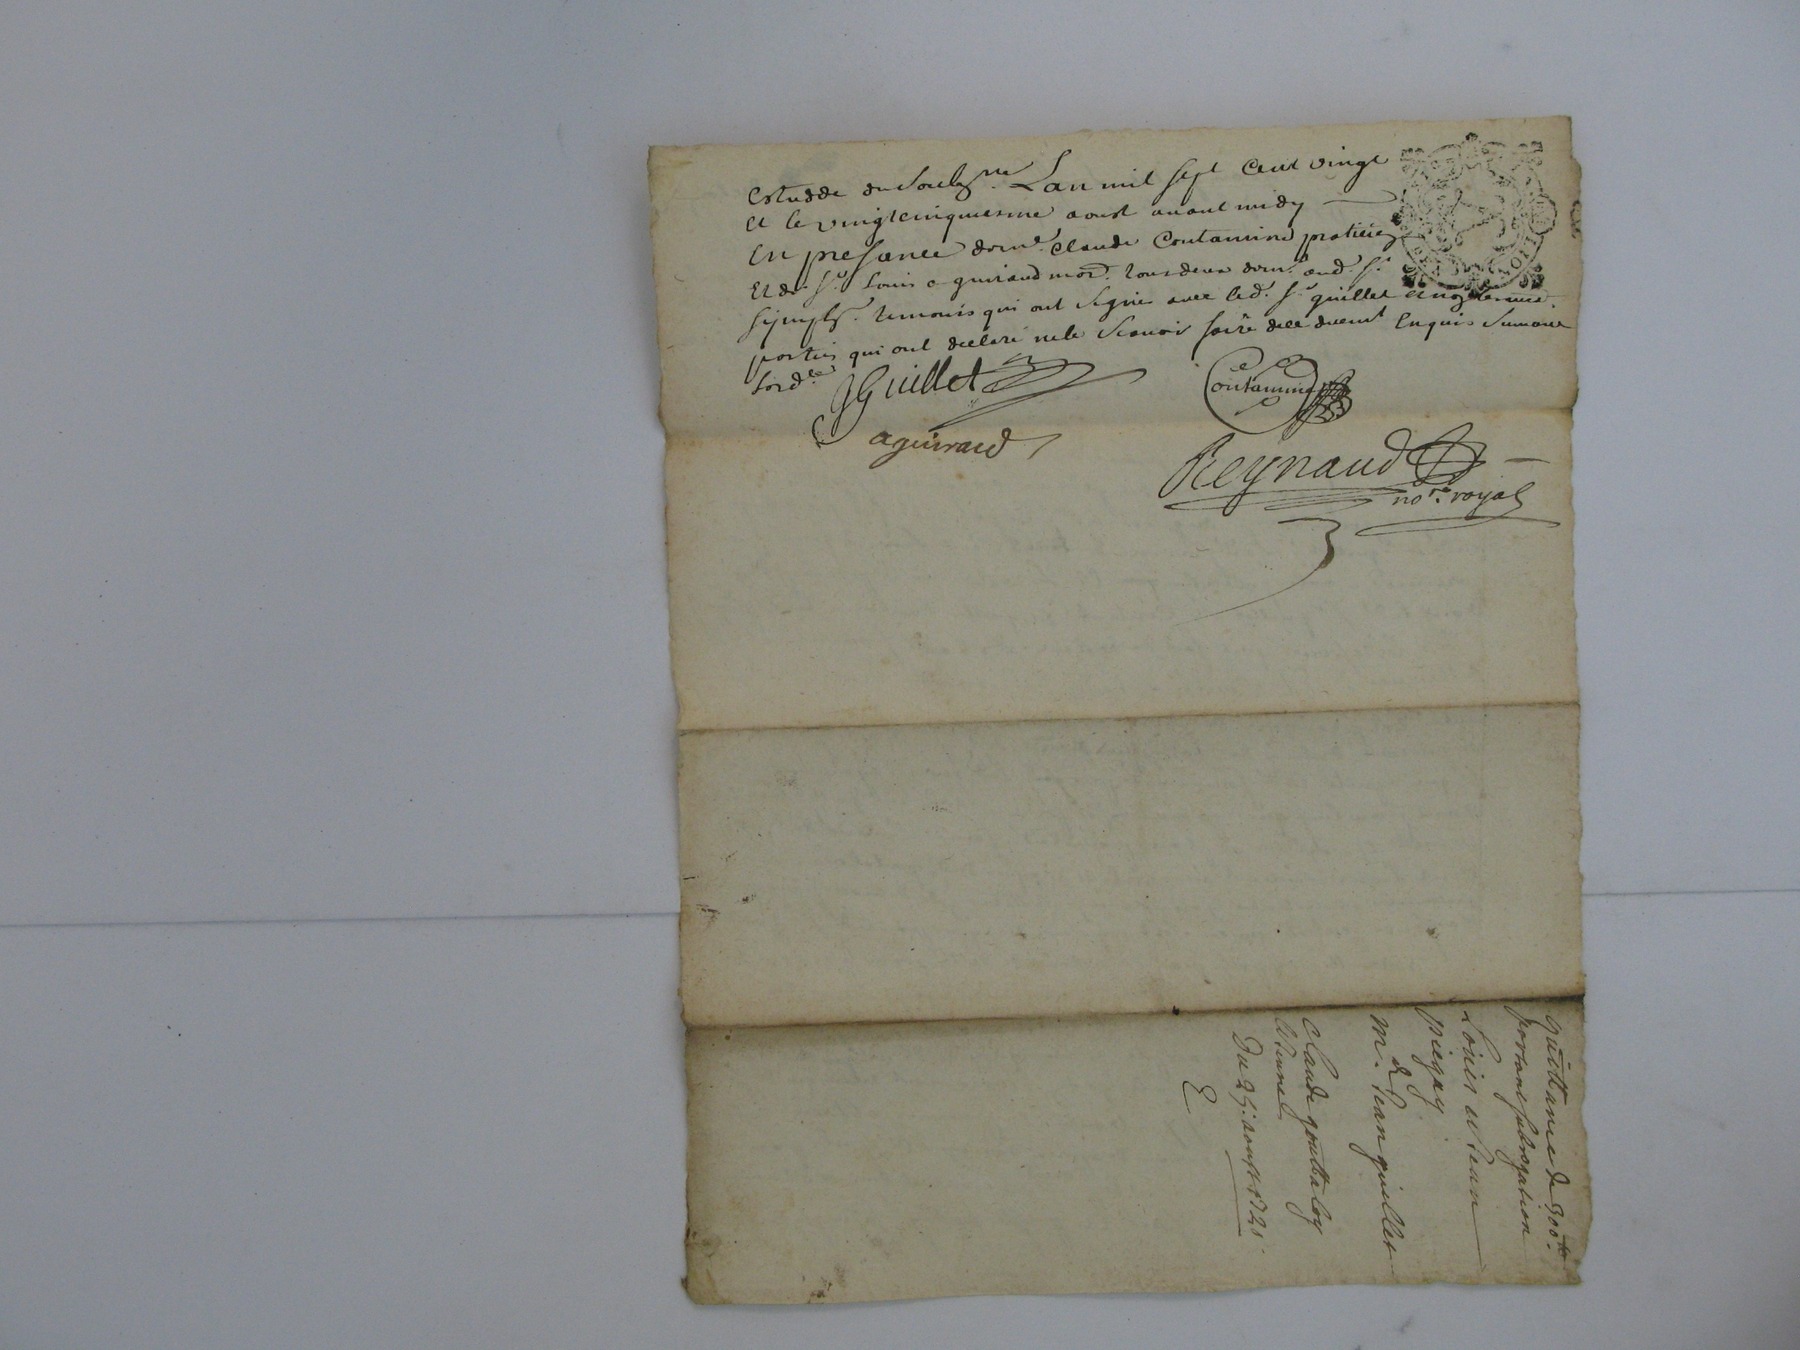 Estudde du soubz.ne Lan mil sept cent vingt
et le vingtcinquiesme aoust avant midy
En presance de me. Claude Contamine praticien
Et de sr. Louis aguiraud tous deux aud. st.
temoins qui ont signé avec led. sr. guillet
parties qui ont declaré ne le scavoir faire de ce enquis
J Guillet
Contamine
aguiraud
Reynaud
no.re royal
quittance de 300 lt.
portant subrogation
Louis et Jean
piegay
&
M.r Jean guillet
Claude
Du 25. aoust 1720